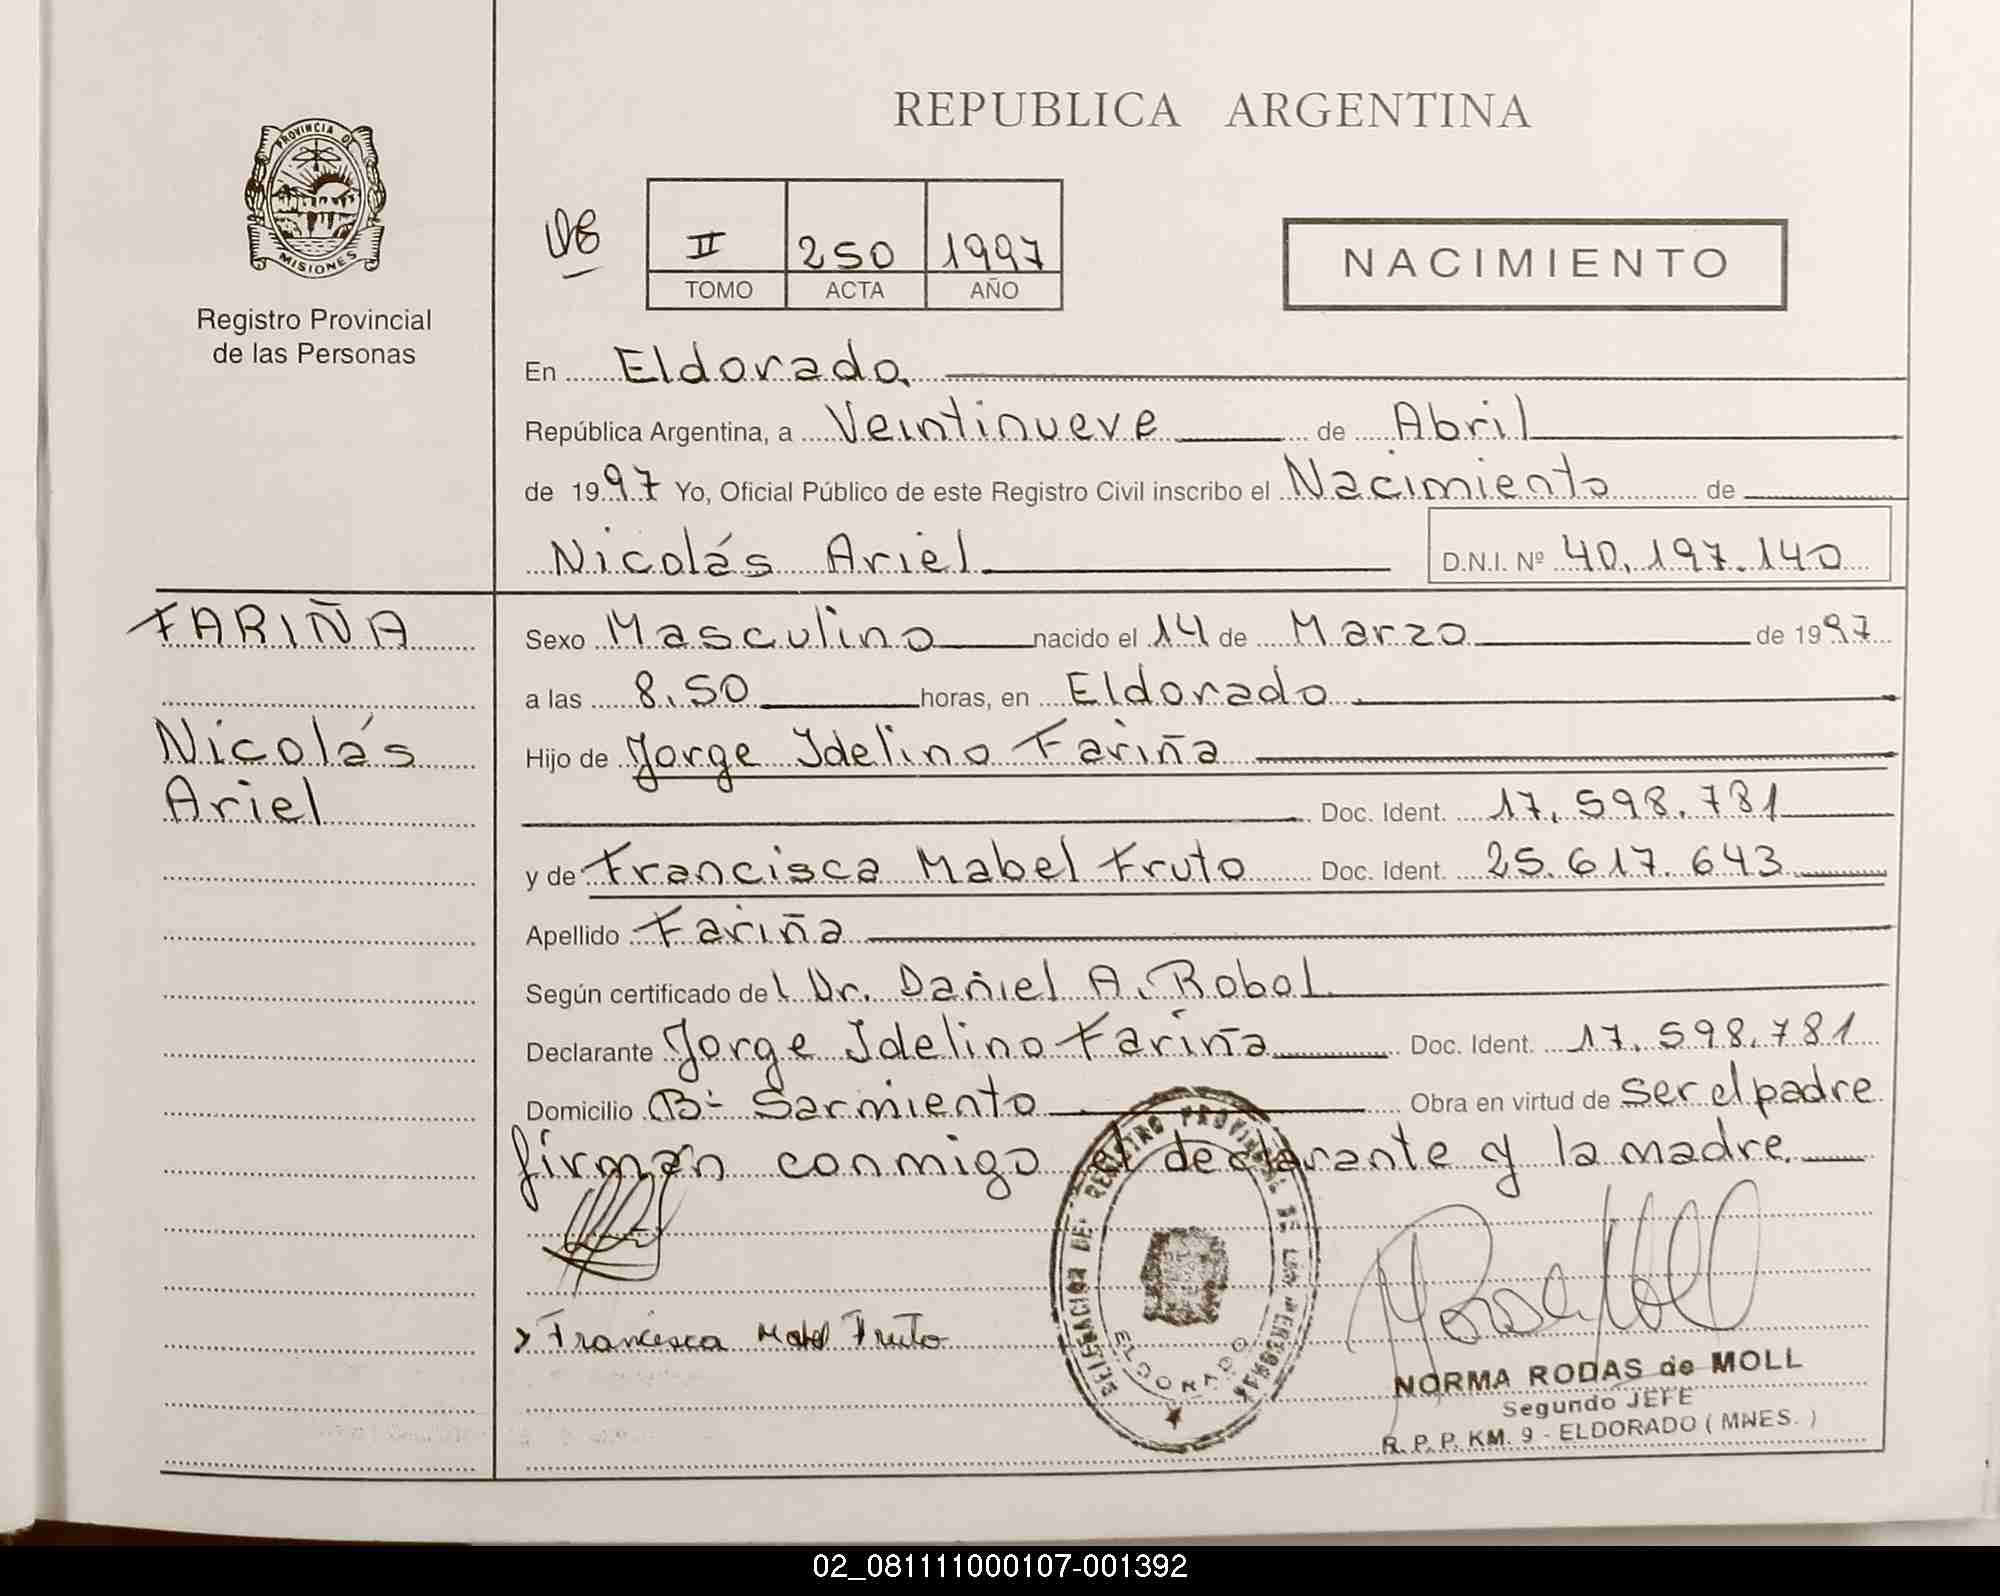 REPUBLICA ARGENTINA
PROVINCIA DE
MISIONES
Registro Provincial
de las Personas
II 250 1997
TOMO ACTA AÑO
NACIMIENTO
En Eldorado.
República Argentina, a Veintinueve de Abril
de 1997 Yo, Oficial Público de este Registro Civil inscribo el Nacimiento de
Nicolás Ariel D.N.I. Nº 40.197.140
FARIÑA
Nicolás
Ariel
Sexo Masculino nacido el 14 de Marzo de 1997
a las 8.50 horas, en Eldorado
Hijo de Jorge Idelino Fariña
Doc. Ident. 17.598.781
y de Francisca Mabel Fruto Doc. Ident. 25.617.643
Apellido Fariña
Según certificado del Dr. Daniel A. Robol
Declarante Jorge Idelino Fariña Doc. Ident. 17.598.781
Domicilio Bº Sarmiento Obra en virtud de ser el padre
firman conmigo el declarante y la madre.
Francisca Mabel Fruto
DELEGACION DEL REGISTRO PROVINCIAL DE LAS PERSONAS
ELDORADO
NORMA RODAS de MOLL
Segundo JEFE
R. P. P. KM. 9 - ELDORADO ( MNES. )
02_081111000107-001392